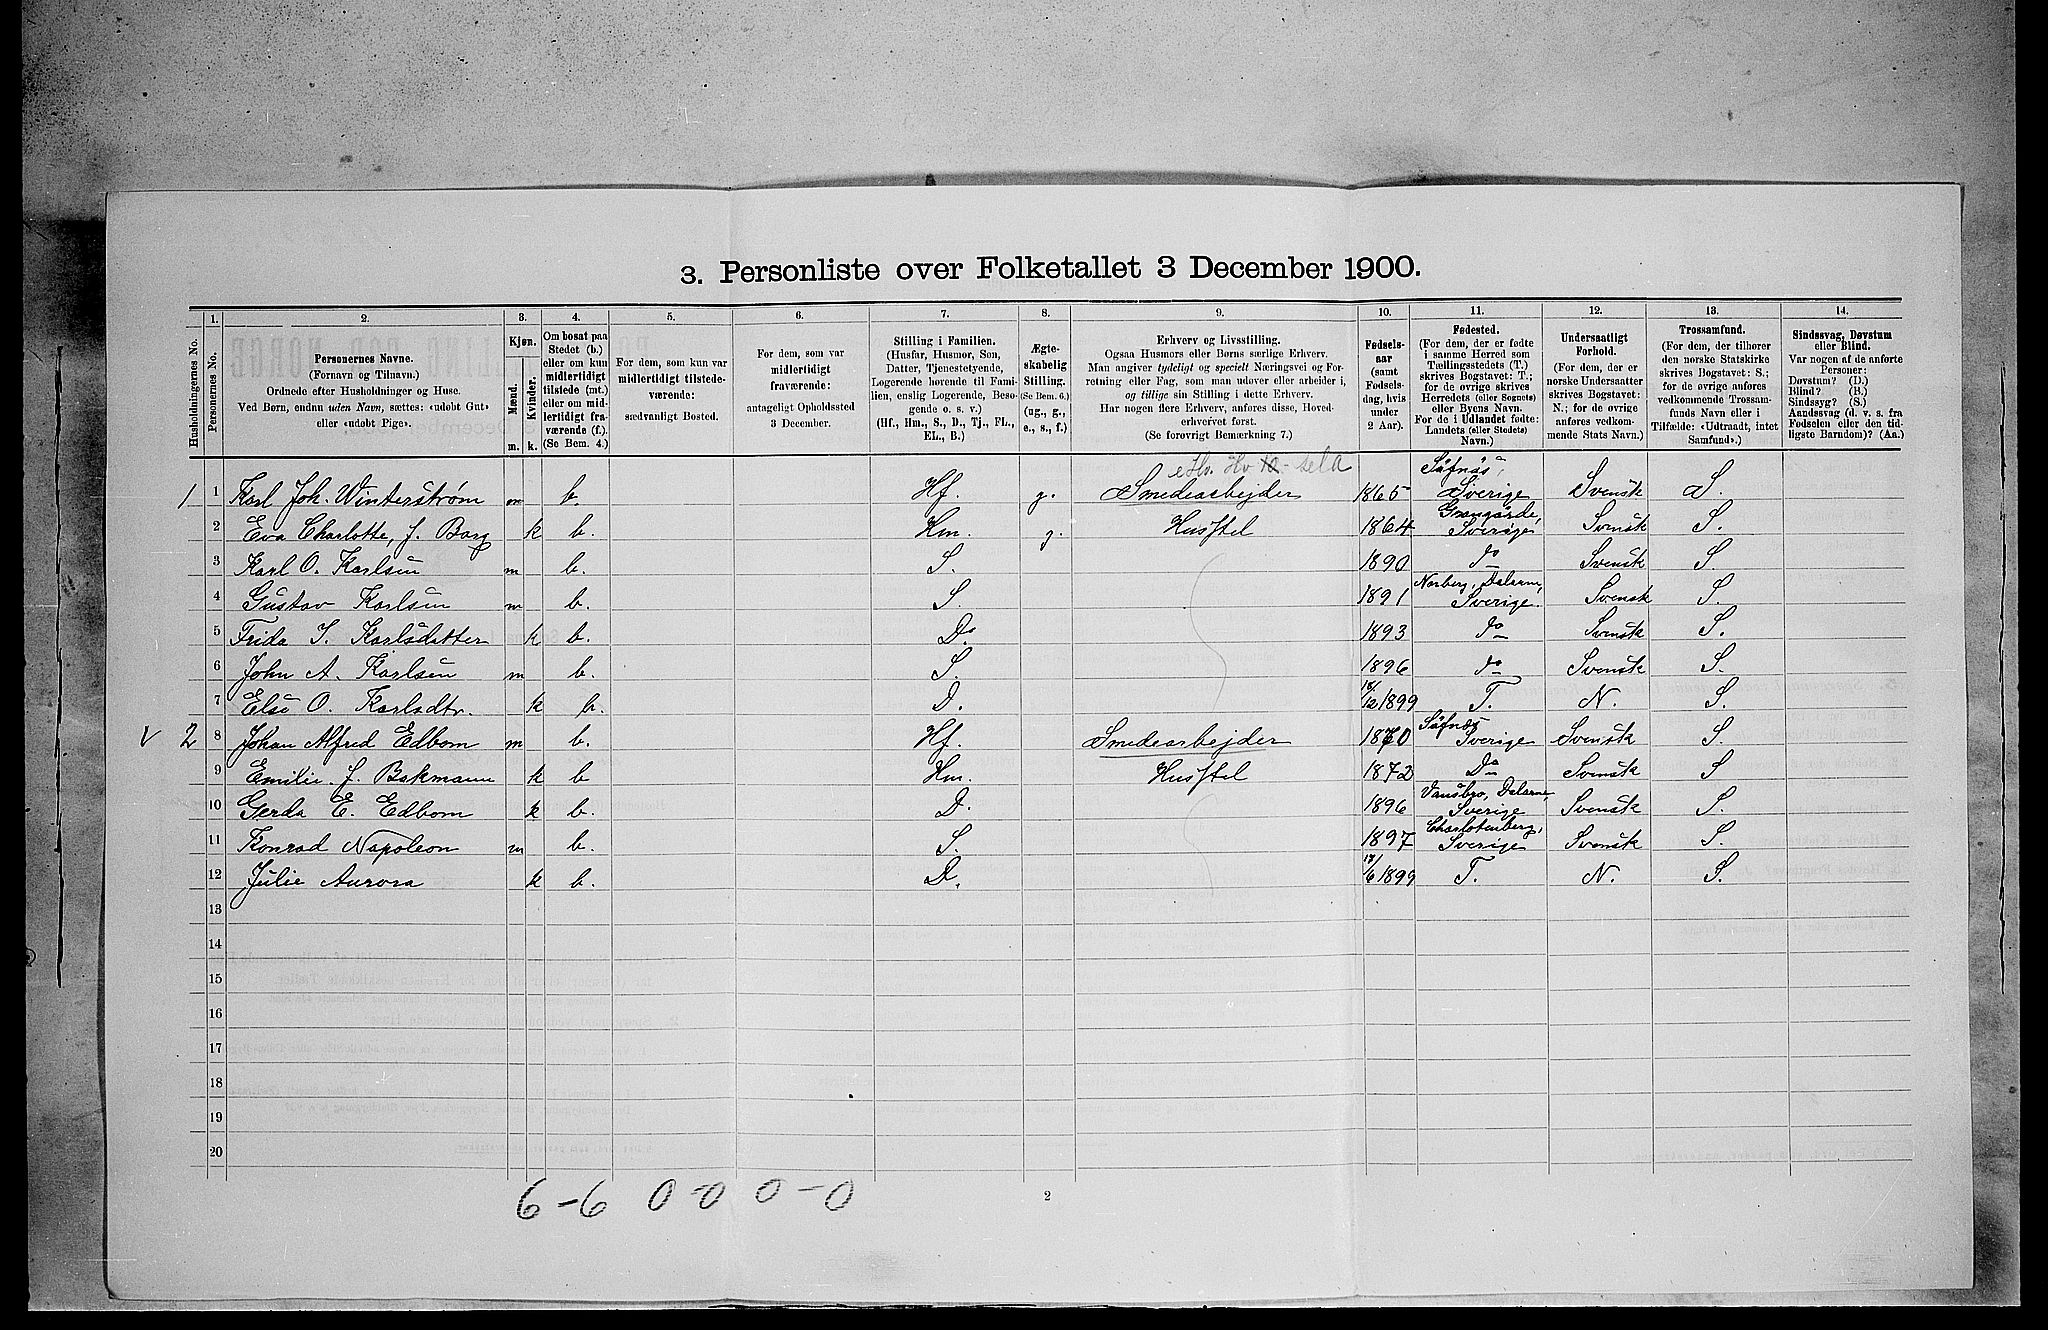 3. Personliste over Folketallet 3 December 1900.
1. 2. 3. 4. 5. 6. 7. 8. 9. 10. 11. 12. 13. 14.
Husholdningernes No.
Personernes No.
Personernes Navne.
(Fornavn og Tilnavn.)
Ordnede efter Husholdninger og Huse.
Ved Børn, endnu uden Navn, sættes: «udøbt Gut»
eller «udøbt Pige».
Kjøn.
Mænd.
Kvinder.
m. k.
Om bosat paa
Stedet (b.)
eller om kun
midlertidigt
tilstede (mt.)
eller om mid-
lertidigt fra-
værende (f.)
(Se Bem. 4.)
For dem, som kun var
midlertidigt tilstede-
værende:
sædvanligt Bosted.
For dem, som var
midlertidigt
fraværende:
antageligt Opholdssted
3 December.
Stilling i Familien.
(Husfar, Husmor, Søn,
Datter, Tjenestetyende,
Logerende hørende til Fami-
lien, enslig Logerende, Besø-
gende o. s. v.)
(Hf., Hm., S., D., Tj., FL.,
EL., B.)
Ægte-
skabelig
Stilling.
(Se Bem. 6.)
(ug., g.,
e., s., f.)
Erhverv og Livsstilling.
Ogsaa Husmors eller Børns særlige Erhverv.
Man angiver tydeligt og specielt Næringsvei og For-
retning eller Fag, som man udøver eller arbeider i,
og tillige sin Stilling i dette Erhverv.
Har nogen flere Erhverv, anføres disse, Hoved-
erhvervet først.
(Se forøvrigt Bemærkning 7.)
Fødsels-
aar
(samt
Fødsels-
dag, hvis
under
2 Aar).
Fødested.
(For dem, der er fødte
i samme Herred som
Tællingsstedets (T.)
skrives Bogstavet: T.;
for de øvrige skrives
Herredets (eller Sognets)
eller Byens Navn.
For de i Udlandet fødte:
Landets (eller Stedets)
Navn.)
Undersaatligt
Forhold.
(For dem, der er
norske Undersaatter
skrives Bogstavet:
N.; for de øvrige
anføres vedkom-
mende Stats Navn.)
Trossamfund.
(For dem, der tilhører
den norske Statskirke
skrives Bogstavet: S.;
for de øvrige anføres
vedkommende Trossam-
funds Navn eller i
Tilfælde: «Udtraadt, intet
Samfund».)
Sindssvag, Døvstum
eller Blind.
Var nogen af de anførte
Personer:
Døvstum? (D.)
Blind? (B.)
Sindssyg? (S.)
Aandssvag (d. v. s. fra
Fødselen eller den tid-
ligste Barndom)? (Aa.)
1 1 Karl Joh. Winterstrøm m b. Hf. g. Smedearbejder 1865 Säfnäs, Sverige Svensk S.
2 Eva Charlotte, f. Borg k b. Hm. g. Husstel 1864 Grangärde, Sverige Svensk S.
3 Karl O. Karlsen m b. S. 1890 do Svensk S.
4 Gustav Karlsen m b. S. 1891 Norberg, Dalarne, Sverige. Svensk S.
5 Frida I. Karlsdatter k b. D. 1893 do Svensk S.
6 John A. Karlsen m b. S. 1896 do Svensk S.
7 Else O. Karlsdtr. k b. D. 18/12 1899 T. N. S.
v 2 8 Johan Alfred Edbom m b. Hf. Smedearbejder 1870 Säfnäs Sverige Svensk S.
9 Emilie f. Bakmann k b Hm. Husstel 1872 Do Svensk S
10 Gerda E. Edbom k b. D. 1896 Vansbro, Dalarne, Sverige Svensk S.
11 Konrad Napoleon m b. S. 1897 Charlotenberg, Sverige Svensk S.
12 Julie Aurora k b. D. /6 1899 T. N. S.
13
14
15
16
17
18
19
20
6-6 0-0 0-0
2